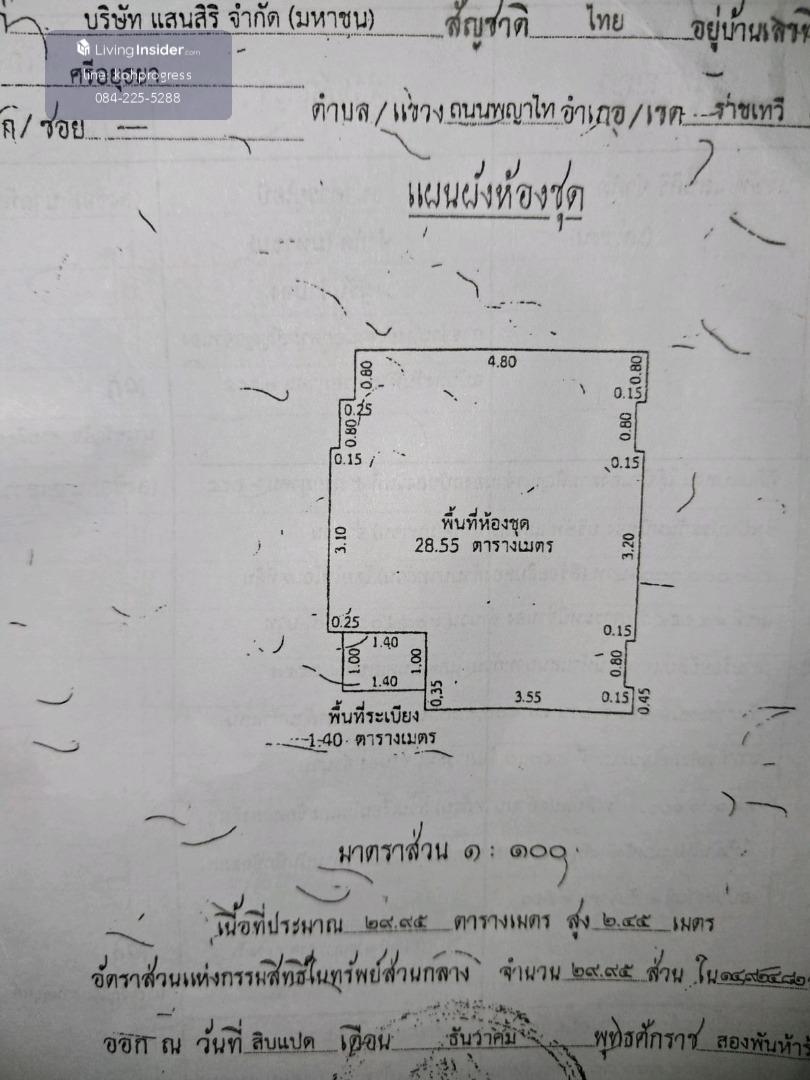 บริษัท แสนสิริ จำกัด (มหาชน) สัญชาติ ไทย อยู่บ้านเลขที่
LivingInsider.com
line: kohprogress
084-225-5288
ศรีอยุธยา
/ซอย — ตำบล/แขวง ถนนพญาไท อำเภอ/เขต ราชเทวี
แผนผังห้องชุด
4.80
0.80 0.80
0.25 0.15
0.80 0.80
0.15 0.15
พื้นที่ห้องชุด
28.55 ตารางเมตร
3.10 3.20
0.25 0.15
1.40
1.00 1.00 0.80
1.40
0.35 3.55 0.15 0.45
พื้นที่ระเบียง
1.40 ตารางเมตร
มาตราส่วน ๑ : ๑๐๐
เนื้อที่ประมาณ ๒๙.๙๕ ตารางเมตร สูง ๒.๔๕ เมตร
อัตราส่วนแห่งกรรมสิทธิ์ในทรัพย์ส่วนกลาง จำนวน ๒๙.๙๕ ส่วน ใน
ออก ณ วันที่ สิบแปด เดือน ธันวาคม พุทธศักราช สองพันห้าร้